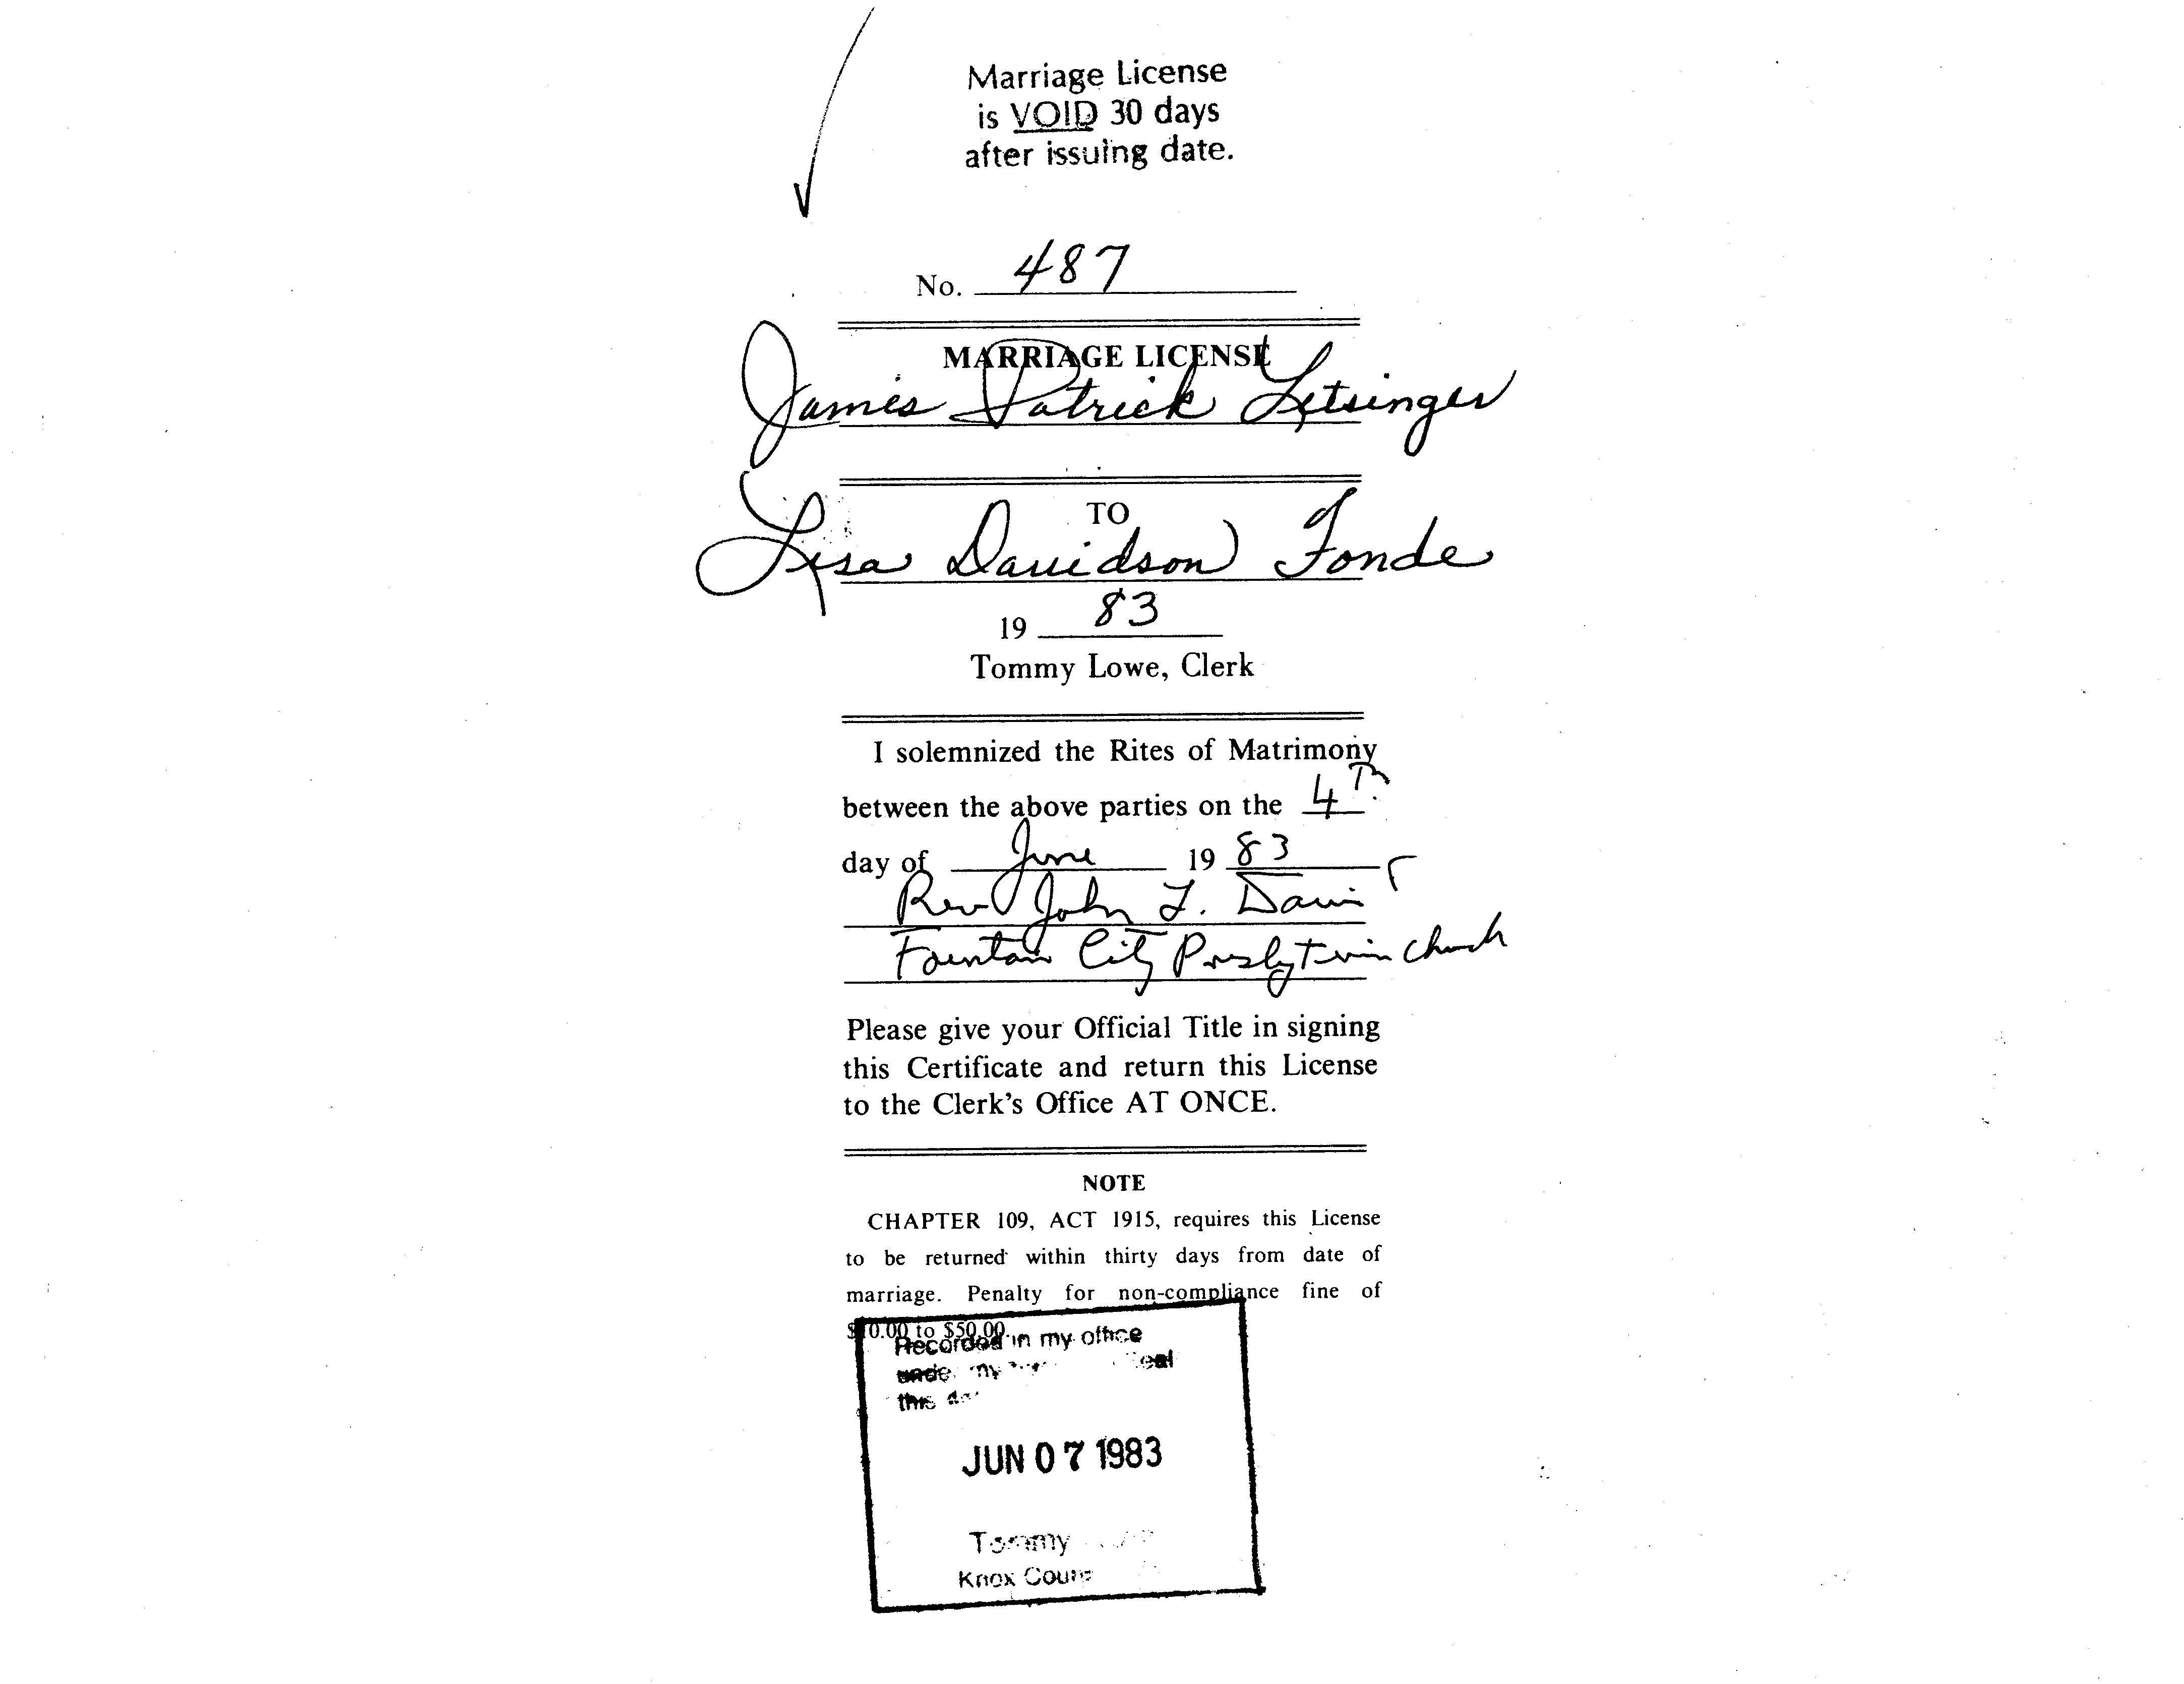 Marriage License
is VOID 30 days
after issuing date.
No. 487
MARRIAGE LICENSE
James Patrick Letsinger
TO
Lisa Davidson Fonde
19 83
Tommy Lowe, Clerk
I solemnized the Rites of Matrimony
between the above parties on the 4th.
day of June 19 83
Rev John F. Davis
Fountain City Presbyterian Church
Please give your Official Title in signing
this Certificate and return this License
to the Clerk's Office AT ONCE.
NOTE
CHAPTER 109, ACT 1915, requires this License
to be returned within thirty days from date of
marriage. Penalty for non-compliance fine of
$10.00 to $50.00.
Recorded in my office
under my
this
JUN 07 1983
Tommy
Knox